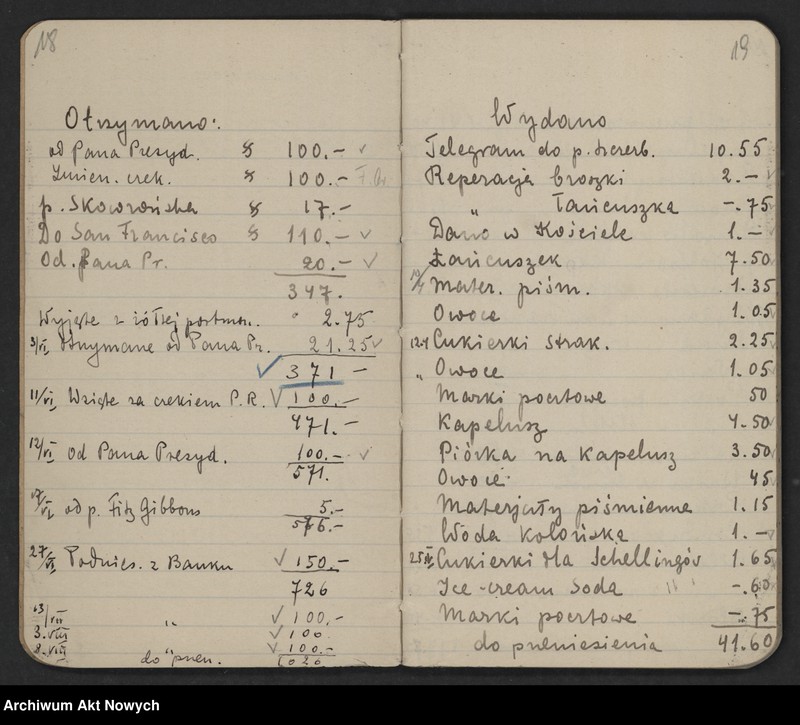 18
Otrzymano:
od Pana Prezyd. $ 100.-
Zmien. czek. $ 100.-
p. Skowrońska $ 17.-
Do San Francisco $ 110.-
Od. Pana Pr. 20.-
347.
Wyjęte z żółtej portmon. 2.75
3/VI Otrzymane od Pana Pr. 21.25
371 -
11/VI Wzięte za czekiem P.R. 100.-
471.-
12/VI od Pana Prezyd. 100.-
571.
17/VI od p. Fitz Gibbons 5.-
576.-
27/VI Podnies. z Banku 150.-
726
13/VII " 100.-
3.VIII 100
8.VIII 100.-
do pnen. 1026
19
Wydano
Telegram do p. Szczerb. 10.55
Reperacja broszki 2.-
" Łańcuszka -.75
Dano w Kościele 1.-
Łańcuszek 7.50
Mater. piśm. 1.35
Owoce 1.05
Cukierki Strak. 2.25
" Owoce 1.05
Marki pocztowe 50
Kapelusz 4.50
Piórka na kapelusz 3.50
Owoce 45
Materjały piśmienne 1.15
Woda Kolońska 1.-
25 Cukierki dla Schellingów 1.65
Ice-cream Soda -.60
Marki pocztowe -.75
do przeniesienia 41.60
Archiwum Akt Nowych